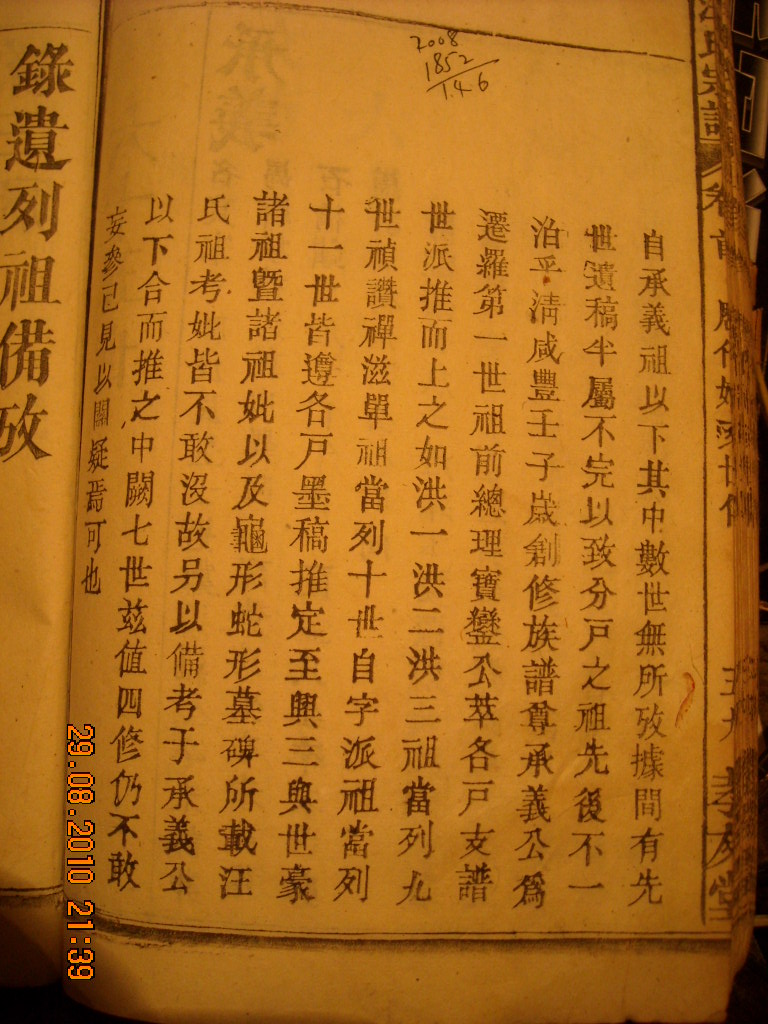 2008
1852
146
氏宗譜 卷首 五九 孝友堂
自承義祖以下其中數世無所攷據間有先
世遺稿半屬不完以致分戸之祖先後不一
洎乎淸咸豐壬子歲創修族譜尊承義公爲
遷羅第一世祖前總理寶鑾公萃各戸支譜
世派推而上之如洪一洪二洪三祖當列九
世禎讚禪滋單祖當列十世自字派祖當列
十一世皆遵各戸墨稿推定至興三與世豪
諸祖暨諸祖妣以及龜形蛇形墓碑所載汪
氏祖考妣皆不敢沒故另以備考于承義公
以下合而推之中闕七世茲值四修仍不敢
妄參己見以闕疑焉可也
錄遺列祖備攷
29.08.2010 21:39